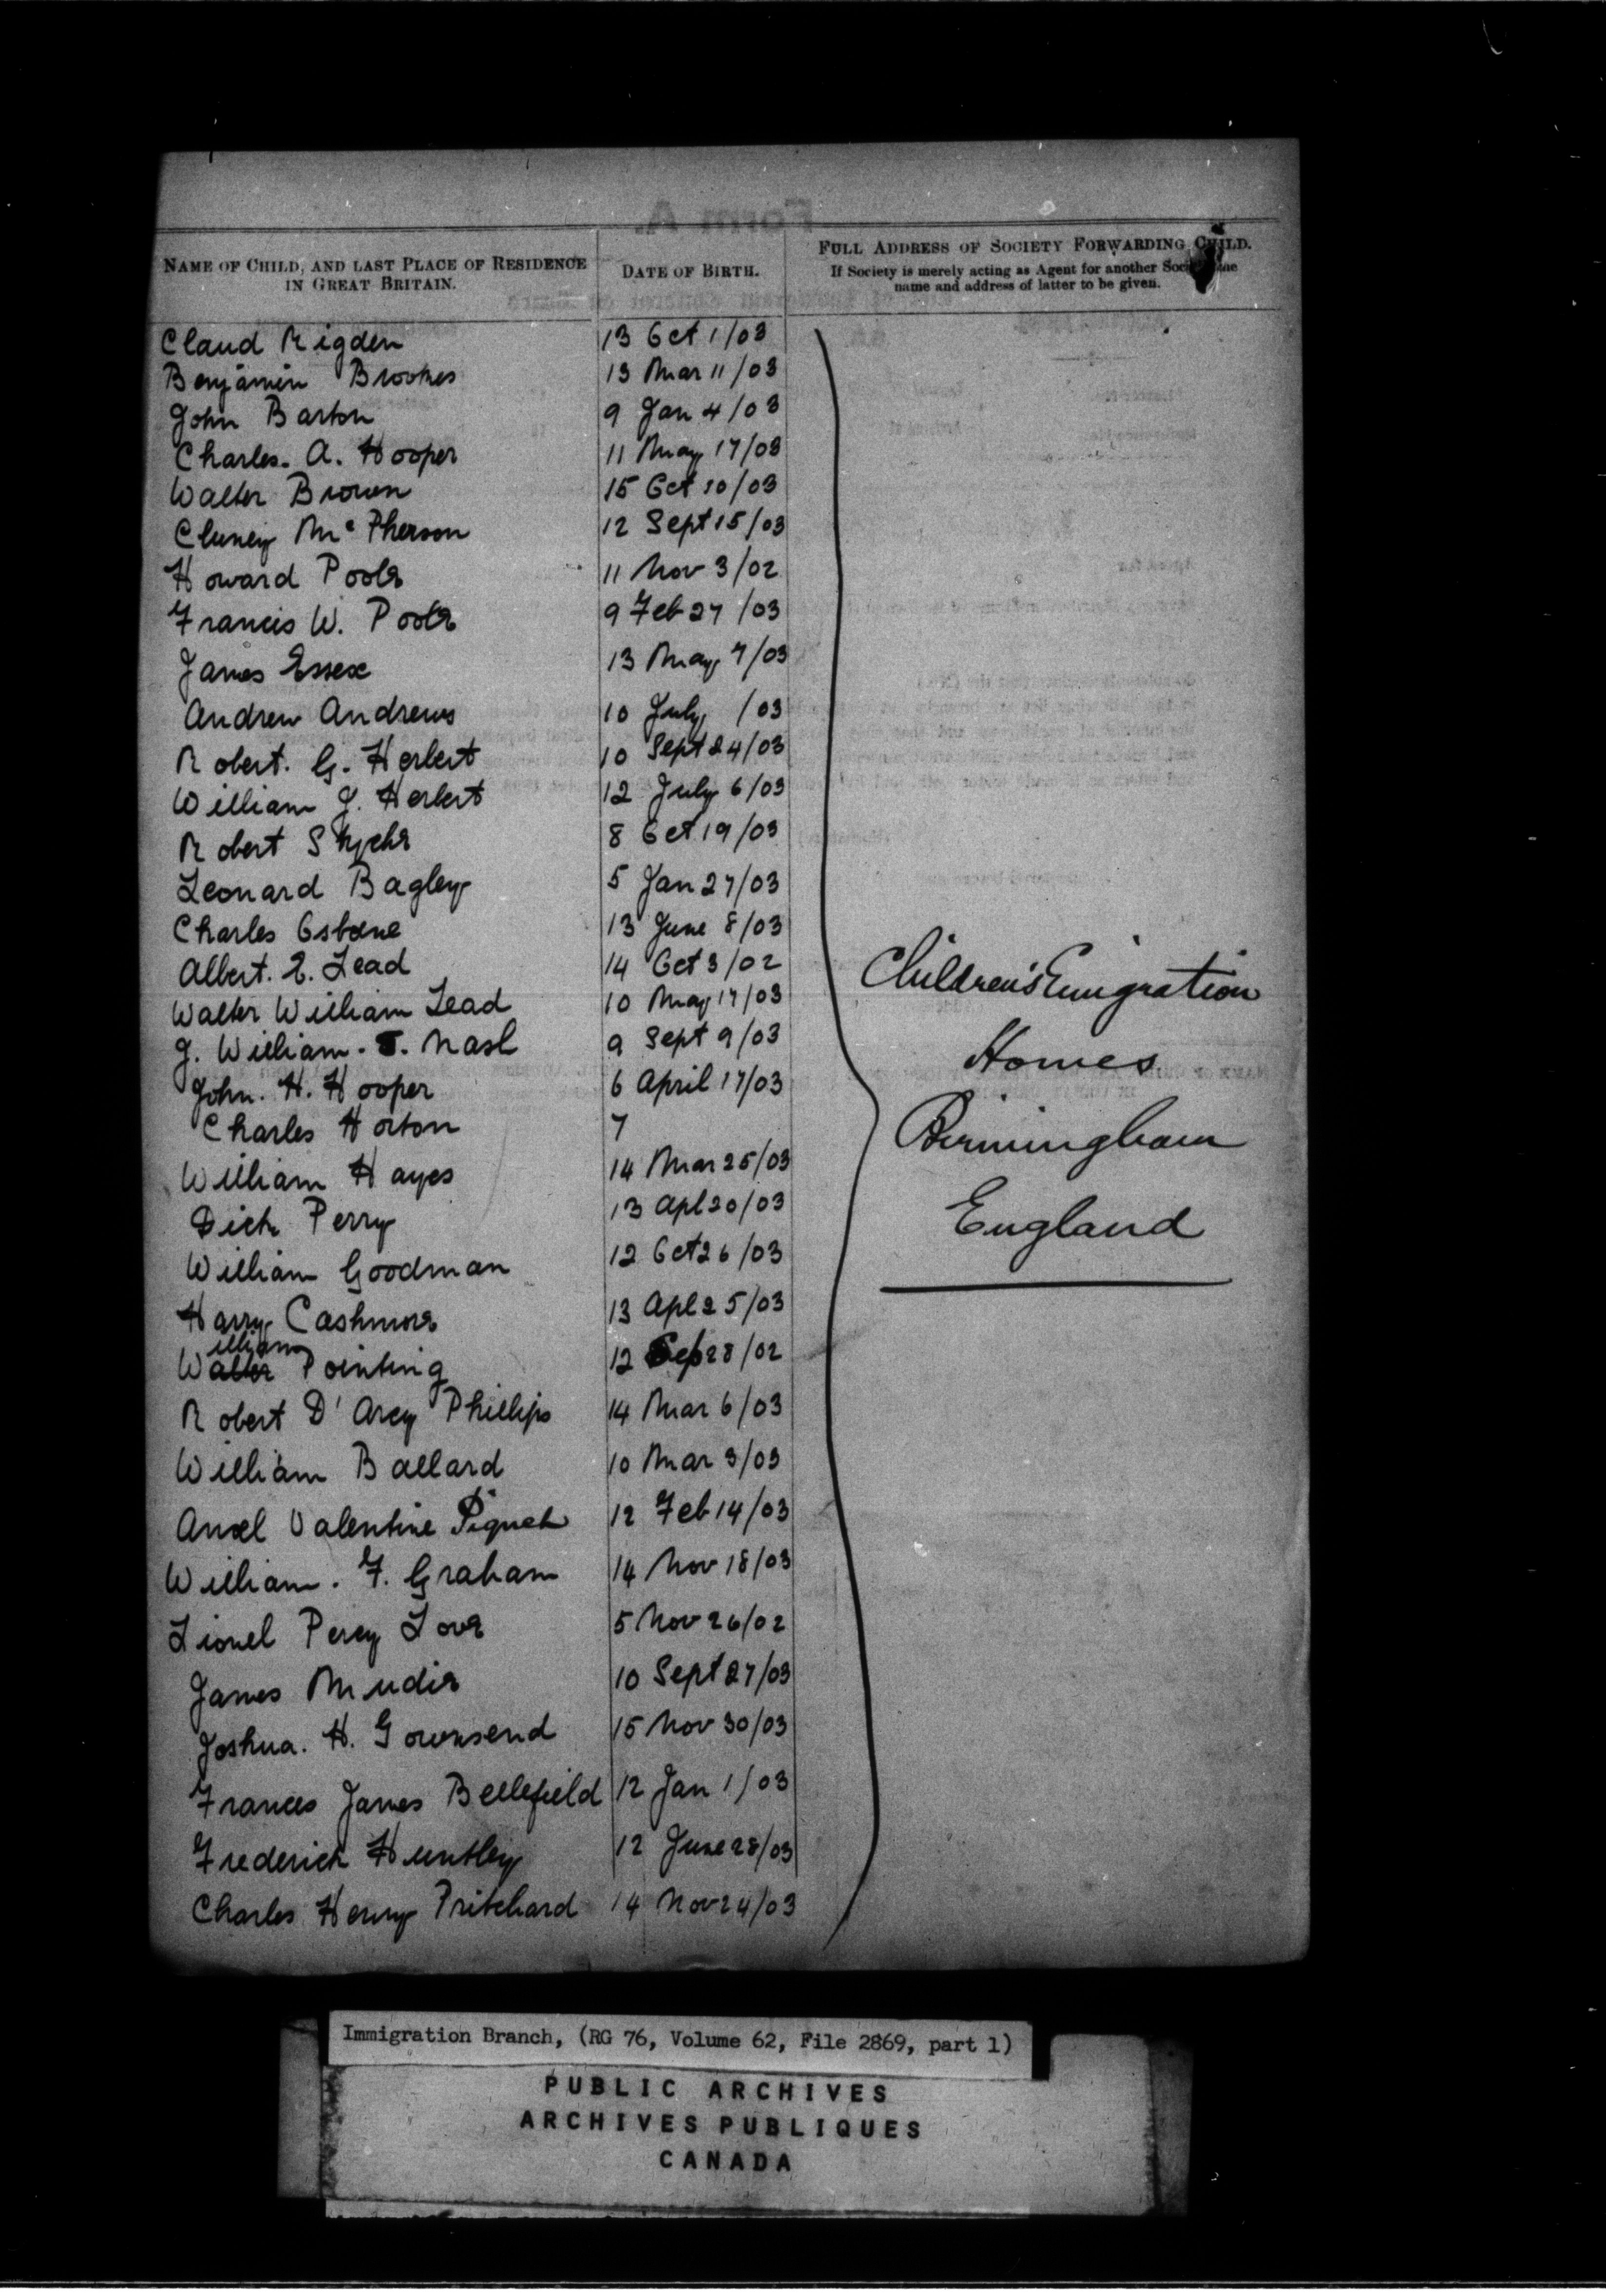 NAME OF CHILD, AND LAST PLACE OF RESIDENCE
IN GREAT BRITAIN.
DATE OF BIRTH.
FULL ADDRESS OF SOCIETY FORWARDING CHILD.
If Society is merely acting as Agent for another Society the
name and address of latter to be given.
Claud Rigden 13 Oct 1/03
Benjamin Brookes 13 Mar 11/03
John Barton 9 Jan 4/03
Charles. A. Hooper 11 May 17/03
Walter Brown 15 Oct 10/03
Cluney McPherson 12 Sept 15/03
Howard Poole 11 Nov 3/02
Francis W. Poole 9 Feb 27/03
James Essex 13 May 7/03
Andrew Andrews 10 July /03
Robert. G. Herbert 10 Sept 24/03
William J. Herbert 12 July 6/03
Robert 8 Oct 19/03
Leonard Bagley 5 Jan 27/03
Charles Osbone 13 June 8/03
Albert. E. Lead 14 Oct 3/02
Walter William Lead 10 May 17/03
J. William. T. Nash 9 Sept 9/03
John. H. Hooper 6 April 17/03
Charles Horton 7
William Hayes 14 Mar 25/03
Dick Perry 13 Apl 20/03
William Goodman 12 Oct 26/03
Harry Cashmore 13 Apl 25/03
illiam
Walter Pointing 12 Sep 28/02
Robert D'Arcy Phillips 14 Mar 6/03
William Ballard 10 Mar 3/03
Valentine 12 Feb 14/03
William. F. Graham 14 Nov 18/03
Lionel Percy Love 5 Nov 26/02
James Mudie 10 Sept 27/03
Joshua. H. Townsend 15 Nov 30/03
Frances James Bellefield 12 Jan 1/03
Frederick Huntley 12 June 28/03
Charles Henry Pritchard 14 Nov 24/03
Children's Emigration
Homes
Birmingham
England
Immigration Branch, (RG 76, Volume 62, File 2869, part 1)
PUBLIC ARCHIVES
ARCHIVES PUBLIQUES
CANADA